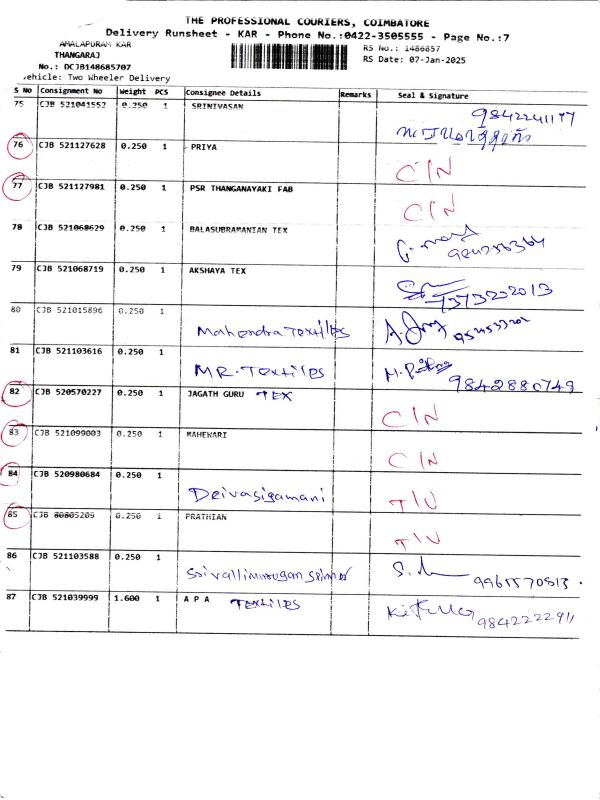 THE PROFESSIONAL COURIERS, COIMBATORE
Delivery Runsheet - KAR - Phone No.:0422-3505555 - Page No.:7
AMALAPURAM KAR
RS No.: 1486857
THANGARAJ
RS Date: 07-Jan-2025
No.: DCJB148685707
ehicle: Two Wheeler Delivery
S No Consignment No Weight PCS Consignee Details Remarks Seal & Signature
75 CJB 521041552 0.250 1 SRINIVASAN
76 CJB 521127628 0.250 1 PRIYA C/N
77 CJB 521127981 0.250 1 PSR THANGANAYAKI FAB C/N
78 CJB 521068629 0.250 1 BALASUBRAMANIAN TEX
79 CJB 521068719 0.250 1 AKSHAYA TEX
80 CJB 521015896 0.250 1 Mahendra Textiles
81 CJB 521103616 0.250 1 MR. Textiles 9842880749
82 CJB 520570227 0.250 1 JAGATH GURU TEX C/N
83 CJB 521099003 0.250 1 MAHEWARI C/N
84 CJB 520980684 0.250 1 Deivasigamani
85 CJB 0.250 1 PRATHIAN
86 CJB 521103588 0.250 1
87 CJB 521039999 1.600 1 A P A Textiles 9842222911